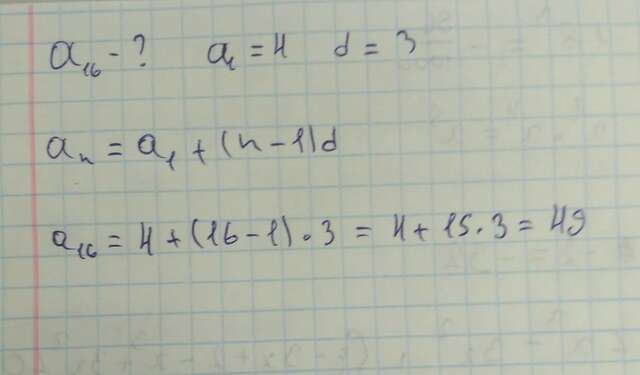 a₁₆ - ? a₁ = 4 d = 3
aₙ = a₁ + (n - 1)d
a₁₆ = 4 + (16 - 1) · 3 = 4 + 15 · 3 = 49